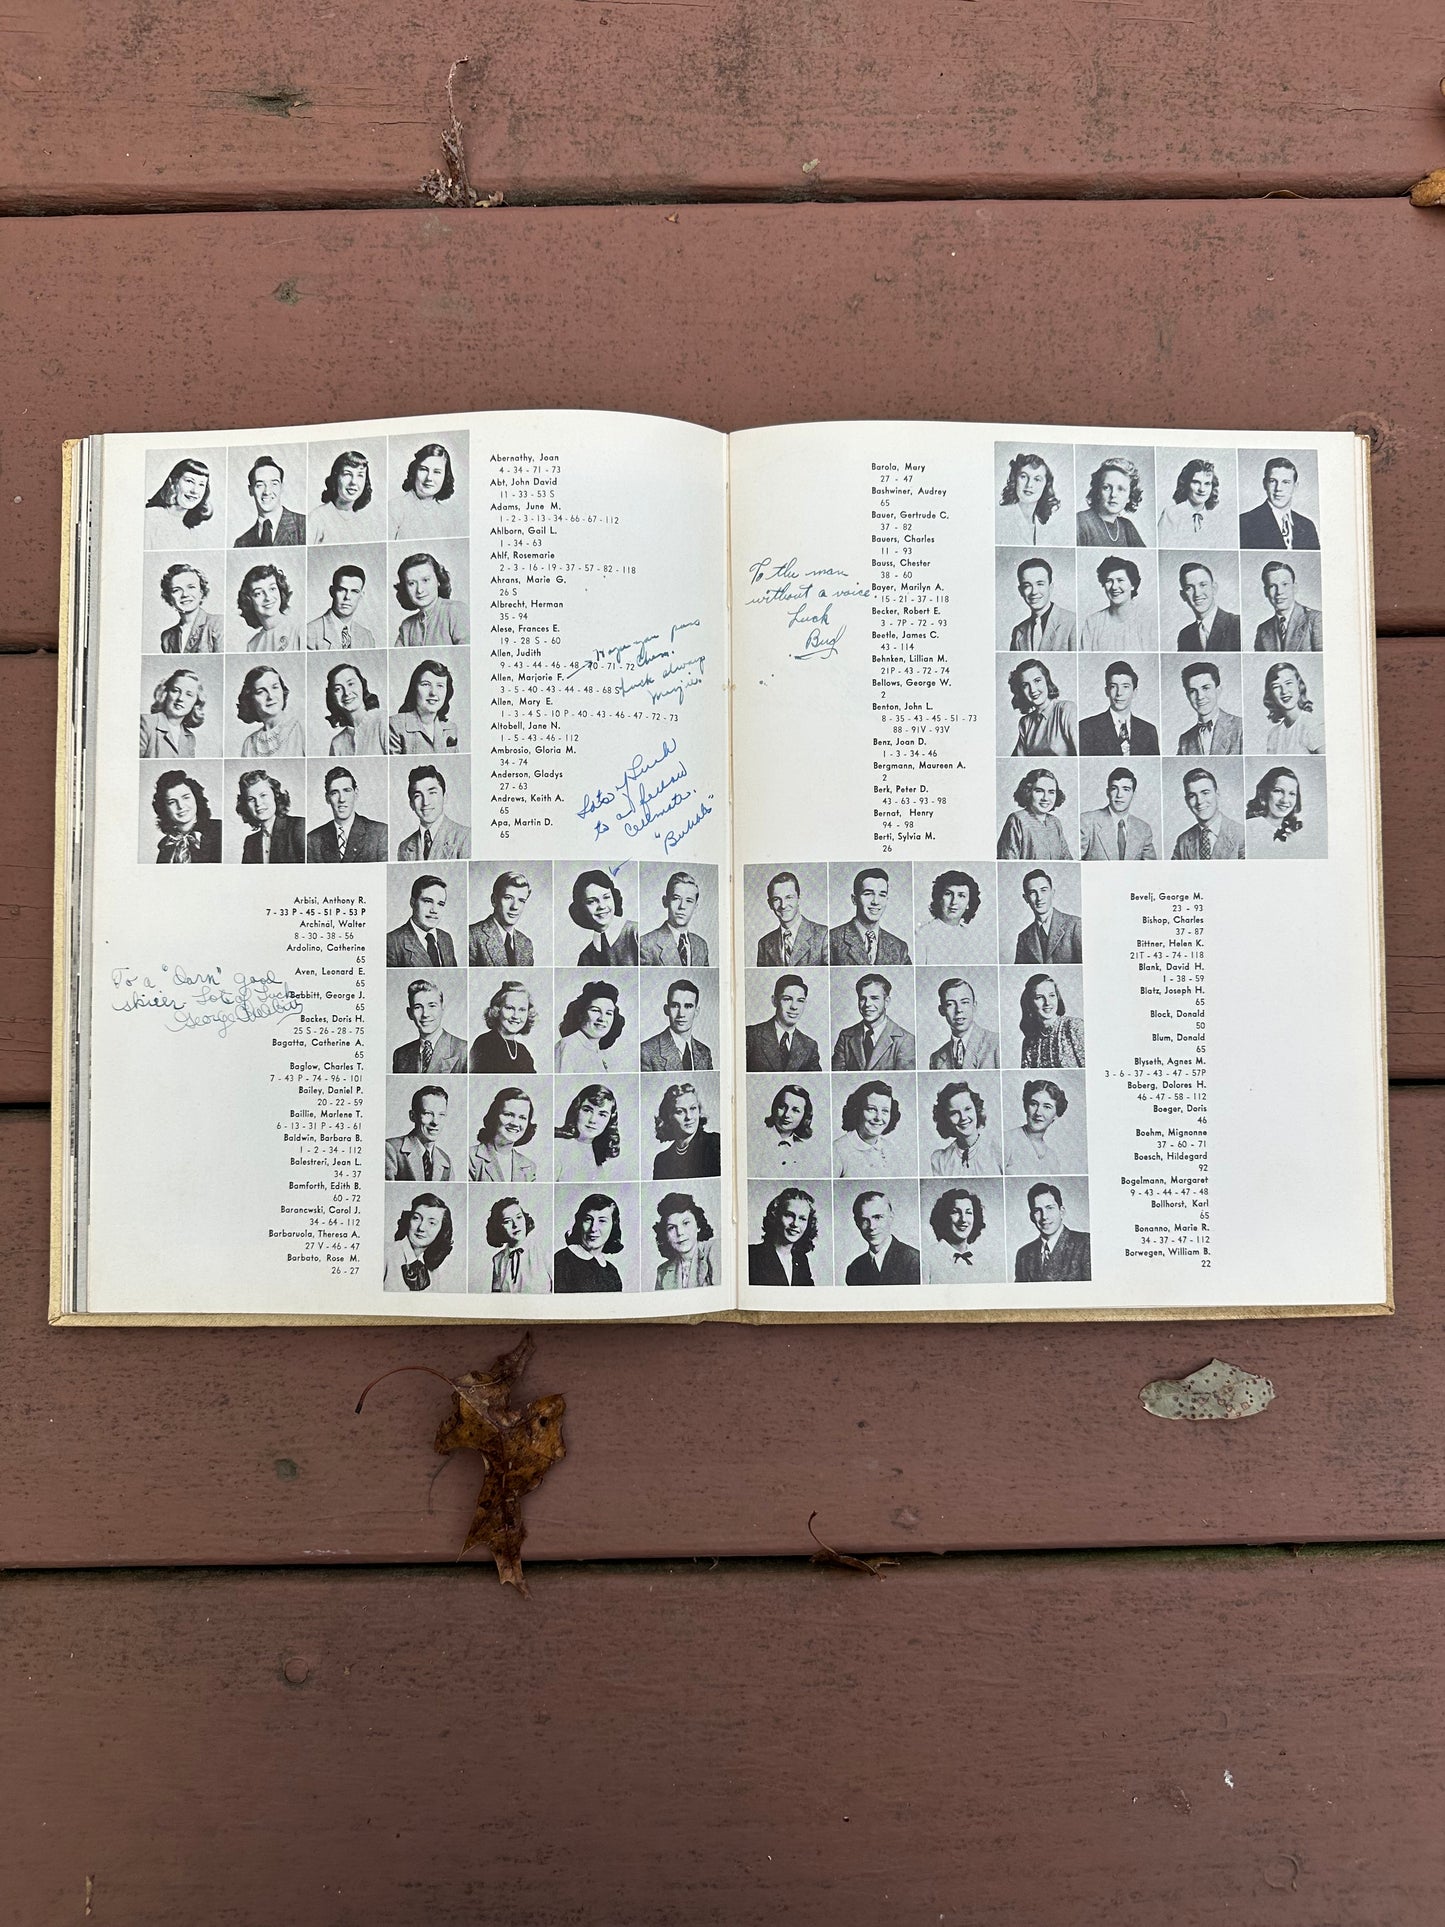 Abernathy, Joan
4 - 34 - 71 - 73
Abt, John David
11 - 33 - 53 S
Adams, June M.
1 - 2 - 3 - 13 - 34 - 66 - 67 - 112
Ahlborn, Gail L.
1 - 34 - 63
Ahlf, Rosemarie
2 - 3 - 16 - 19 - 37 - 57 - 82 - 118
Ahrans, Marie G.
26 S
Albrecht, Herman
35 - 94
Alese, Frances E.
19 - 28 S - 60
Allen, Judith
9 - 43 - 44 - 46 - 48 - 70 - 71 - 72
Allen, Marjorie F.
3 - 5 - 40 - 43 - 44 - 48 - 68 S
Allen, Mary E.
1 - 3 - 4 S - 10 P - 40 - 43 - 46 - 47 - 72 - 73
Altobell, Jane N.
1 - 5 - 43 - 46 - 112
Ambrosio, Gloria M.
34 - 74
Anderson, Gladys
27 - 63
Andrews, Keith A.
65
Apa, Martin D.
65
Hope you pass
Chem.
Luck always
Margie.
Lots of Luck
to a fellow
Cellmate.
"Bubbles"
Arbisi, Anthony R.
7 - 33 P - 45 - 51 P - 53 P
Archinal, Walter
8 - 30 - 38 - 56
Ardolino, Catherine
65
Aven, Leonard E.
65
Babbitt, George J.
65
Backes, Doris H.
25 S - 26 - 28 - 75
Bagatta, Catherine A.
65
Baglow, Charles T.
7 - 43 P - 74 - 96 - 101
Bailey, Daniel P.
20 - 22 - 59
Baillie, Marlene T.
6 - 13 - 31 P - 43 - 61
Baldwin, Barbara B.
1 - 2 - 34 - 112
Balestreri, Jean L.
34 - 37
Bamforth, Edith B.
60 - 72
Barancwski, Carol J.
34 - 64 - 112
Barbaruola, Theresa A.
27 V - 46 - 47
Barbato, Rose M.
26 - 27
To a "Darn" good
skiier Lots of Luck
George Babbitt
Barola, Mary
27 - 47
Bashwiner, Audrey
65
Bauer, Gertrude C.
37 - 82
Bauers, Charles
11 - 93
Bauss, Chester
38 - 60
Bayer, Marilyn A.
15 - 21 - 37 - 118
Becker, Robert E.
3 - 7P - 72 - 93
Beetle, James C.
43 - 114
Behnken, Lillian M.
21P - 43 - 72 - 74
Bellows, George W.
2
Benton, John L.
8 - 35 - 43 - 45 - 51 - 73
88 - 91V - 93V
Benz, Joan D.
1 - 3 - 34 - 46
Bergmann, Maureen A.
2
Berk, Peter D.
43 - 63 - 93 - 98
Bernat, Henry
94 - 98
Berti, Sylvia M.
26
To the man
without a voice.
Luck
Bevelj, George M.
23 - 93
Bishop, Charles
37 - 87
Bittner, Helen K.
21T - 43 - 74 - 118
Blank, David H.
1 - 38 - 59
Blatz, Joseph H.
65
Block, Donald
50
Blum, Donald
65
Blyseth, Agnes M.
3 - 6 - 37 - 43 - 47 - 57P
Boberg, Dolores H.
46 - 47 - 58 - 112
Boeger, Doris
46
Boehm, Mignonne
37 - 60 - 71
Boesch, Hildegard
92
Bogelmann, Margaret
9 - 43 - 44 - 47 - 48
Bollhorst, Karl
65
Bonanno, Marie R.
34 - 37 - 47 - 112
Borwegen, William B.
22